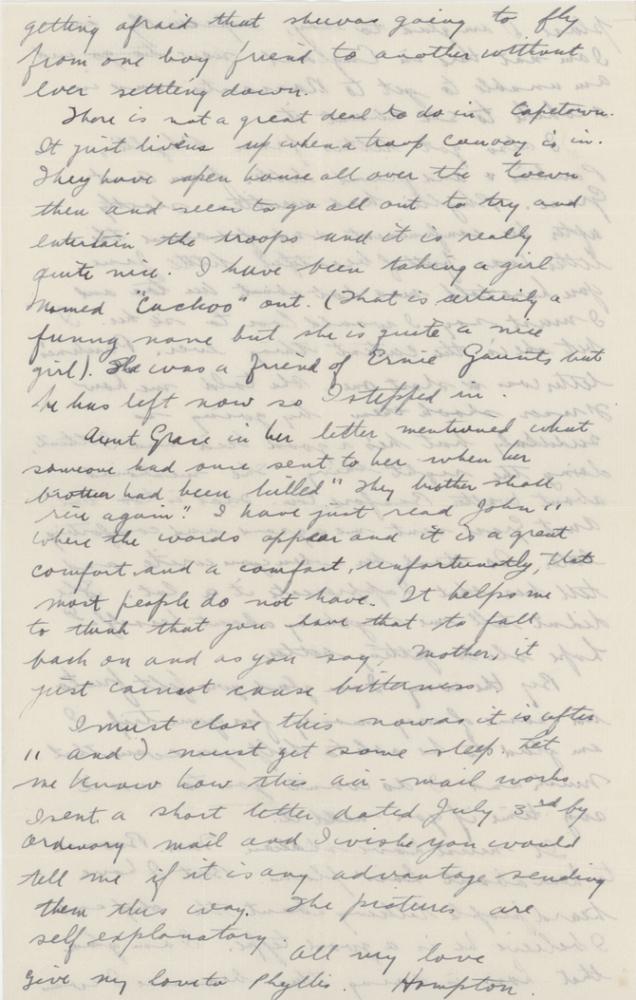 getting afraid that she was going to fly
from one boy friend to another without
ever settling down.
There is not a great deal to do in Capetown.
It just livens up when a troop convoy is in.
They have open house all over the town
then and seem to go all out to try and
entertain the troops and it is really
quite nice. I have been taking a girl
named "Cuckoo" out. (That is certainly a
funny name but she is quite a nice
girl). She was a friend of Ernie Gaunts but
he has left now so I stepped in.
Aunt Grace in her letter mentioned what
someone had once sent to her when her
brother had been killed "Thy brother shall
rise again". I have just read John 11
where the words appear and it is a great
comfort and a comfort, unfortunatly, that
most people do not have. It helps me
to think that you have that to fall
back on and as you say, Mother, it
just cannot cause bitterness.
I must close this now as it is after
11 and I must get some sleep. Let
me know how this air-mail works.
I sent a short letter dated July 3rd by
ordinary mail and I wish you would
tell me if it is any advantage sending
them this way. The pictures are
self explanatory.
All my love
Give my love to Phyllis. Hampton.